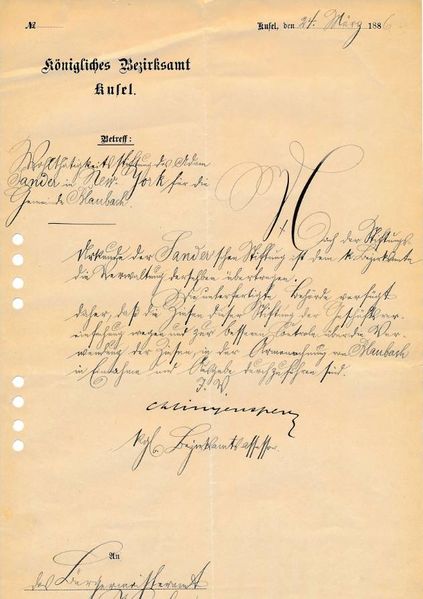 №
Kusel, den 24. März 1886.
Königliches Bezirksamt
Kusel.
Betreff:
Wohlthätigkeitsstiftung des Adam
Sander in New-York für die
Gemeinde Maubach.
Nach der Stiftungs-
Urkunde der Sander'schen Stiftung ist dem k. Bezirksamte
die Verwaltung derselben übertragen.
Die unterfertigte Behörde verfügt
daher, daß die Zinsen dieser Stiftung der Geschäftsver-
einfachung wegen und zur bessern Controle über die Ver-
wendung der Zinsen, in der Armenrechnung von Maubach
in Einnahme und Ausgabe durchzuführen sind.
J. V.
Kgl. Bezirksamtsassessor.
An
das Bürgermeisteramt